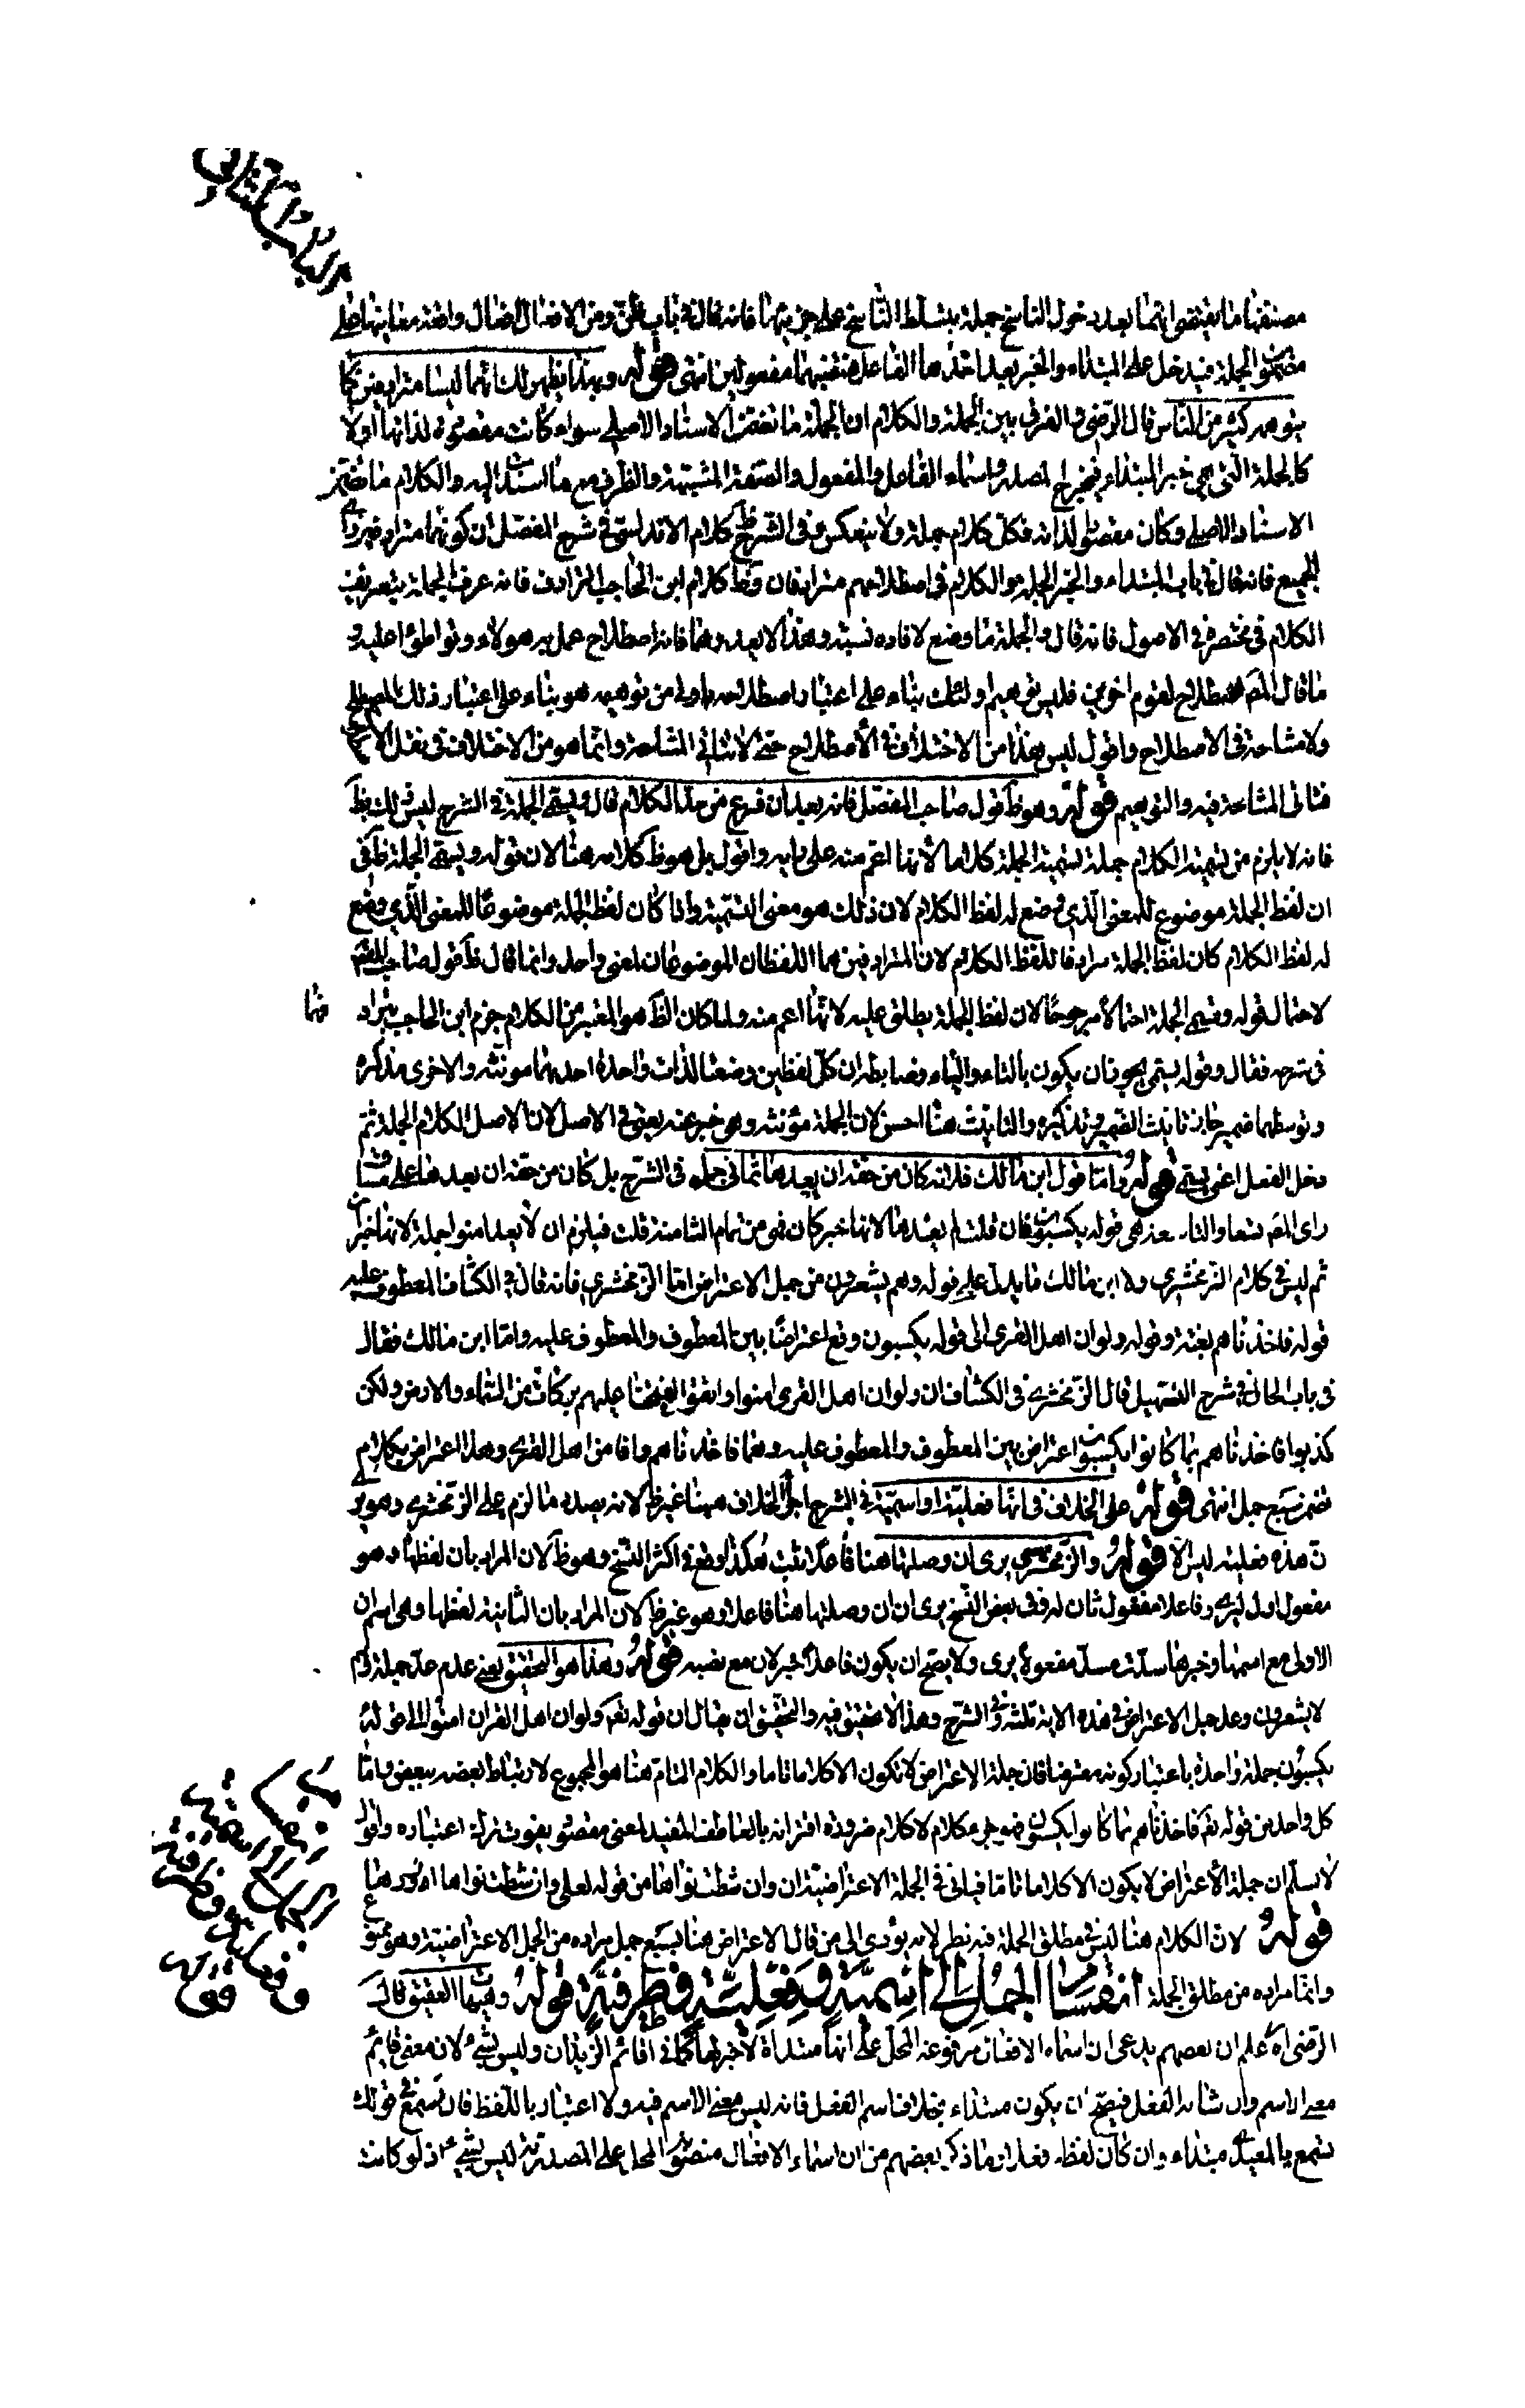 الباب الثاني
مصنفها ما يقتضي انهما بعد دخول الناسخ جملة بتسلط الناسخ على جزئيها فانه قال في باب ظن ومن الافعال افعال واقعة معانيها على
مضمون الجملة فيدخل على المبتداء والخبر بعد اخذها الفاعل فتنصبهما مفعولين انتهى قوله وبهذا يظهر لك انهما ليسا مترادفين كما
يتوهمه كثير من الناس قال الرضي والفرق بين الجملة والكلام ان الجملة ما تضمن الاسناد الاصلي سواء كانت مقصودة لذاتها اولا
كالجملة التي هي خبر المبتداء فيخرج المصدر واسماء الفاعل والمفعول والصفة المشبهة والظرف مع ما اسندت اليه والكلام ما تضمن
الاسناد الاصلي وكان مقصودا لذاته فكل كلام جملة ولا ينعكس وفي الشرح كلام الاندلسي في شرح المفصل ان كونهما مترادفين راي
الجميع فانه قال في باب المبتداء والخبر الجملة والكلام في اصطلاحهم مترادفان وظ كلام ابن الحاجب الترادف فانه عرف الجملة بتعريف
الكلام في مختصره في الاصول فانه قال والجملة ما وضع لافادة نسبة وهذا لا يعد وهما فانه اصطلاح عمل به هولاء وتواطئوا عليه و
ما قال المص اصطلاح لقوم اخرين فليس توهيم اولئك بناء على اعتبار اصطلاحه باولى من توهيمه هو بناء على اعتبار ذلك المصطلح
ولا مشاحة في الاصطلاح واقول ليس هذا من الاختلاف في الاصطلاح حتى لا تتاتي المشاحة وانما هو من الاختلاف في نقل الاصطلاح
فتاتي المشاحة فيه والتوهيم قوله وهو ظ قول صاحب المفصل فانه بعد ان فرغ من حد الكلام قال ويسمى الجملة في الشرح ليس ذلك بظ
فانه لا يلزم من تسمية الكلام جملة تسمية الجملة كلاما لانها اعم منه على رايه واقول بل هو ظ كلامه هنا لان قوله ويسمى الجملة ظ في
ان لفظ الجملة موضوع للمعنى الذي وضع له لفظ الكلام لان ذلك هو معنى التسمية واذا كان لفظ الجملة موضوعا للمعنى الذي وضع
له لفظ الكلام كان لفظ الجملة مرادفا للفظ الكلام لان المترادفين هما اللفظان الموضوعان لمعنى واحد وانما قال ظ قول صاحب المفصل
لاحتمال قوله وتسمى الجملة احتمالا مرجوحا لان لفظ الجملة يطلق عليه لانها اعم منه ولما كان الظ هو المعتبر من الكلام جزم ابن الحاجب بترادفهما
في شرحه فقال وقوله يسمى يجوز ان يكون بالتاء والياء وضابطه ان كل لفظين وضعتا لذات واحدة احدهما مونثه والاخرى مذكره
وتوسطهما ضمير جاز تانيث الضمير وتذكيره والتانيث هنا احسن لان الجملة مؤنثة وهي خبر عنه يعني في الاصل لان الاصل الكلام الجملة ثم
دخل الفعل اعني يسمى قوله واما قول ابن مالك فلانه كان من حقه ان يعدها ثماني جمل في الشرح بل كان من حقه ان يعدها على
راى المص تسعا والتاسعة هي قوله يكسبون فان قلت لم يعدها لانها خبر كان فهي من تمام الثامنة قلت فيلزم ان لا يعد امنوا جملة لانها خبر ان
ثم ليس في كلام الزمخشري ولا ابن مالك ما يدل على قوله وهم يشعرون من جمل الاعتراض اما الزمخشري فانه قال في الكشاف المعطوف عليه
قوله فاخذناهم بغتة وقوله ولو ان اهل القرى الى قوله يكسبون وقع اعتراضا بين المعطوف والمعطوف عليه واما ابن مالك فقال
في باب الحال في شرح التسهيل قال الزمخشري في الكشاف ان ولو ان اهل القرى امنوا واتقوا لفتحنا عليهم بركات من السماء والارض ولكن
كذبوا فاخذناهم بما كانوا يكسبون اعتراض بين المعطوف والمعطوف عليه وهما فاخذناهم وافامن اهل القرى وهذا اعتراض بكلام
تضمن سبع جمل انتهى قوله على الخلاف في انها فعلية او اسمية في الشرح اجراء الخلاف ههنا غير ظ لانه بصدد ما لزم على الزمخشري وهو ير
ان هذه فعلية ليس الا قوله والزمخشري يرى ان وصلتها هنا فاعلا بثبت هكذا وقع في اكثر النسخ وهو ظ لان المراد بان لفظها وهو
مفعول اول ليرى وفاعلا مفعول ثان له وفي بعض النسخ يرى ان ان وصلتها هنا فاعلا وهو غير ظ لان المراد بان الثانية لفظها وهي اسم ان
الاولى مع اسمها وخبرها سدت مسد مفعولي يرى ولا يصح ان يكون فاعلا خبر لان مع نصبه قوله وهذا هو التحقيق يعني عدم عد جملة وهم
لا يشعرون وعد جمل الاعتراض في هذه الاية ثلثة وفي الشرح وهذا لا تحقيق فيه والتحقيق ان يقال ان قوله تعم ولو ان اهل القران امنوا الى قوله
يكسبون جملة واحدة باعتبار كونه معترضا فان جملة الاعتراض لا تكون الا كلاما تاما والكلام التام هنا هو المجموع لارتباط بعضه ببعض واما
كل واحد من قوله تعم فاخذناهم بما كانوا يكسبون فهو جزء كلام لا كلام ضرورة اقترانه بالعاطف المفيد لمعنى مقصود يفوت بترك اعتباره واقول
لا نسلم ان جملة الاعتراض لا يكون الا كلاما تاما فياتي في الجملة الاعتراضية ان وان شطت نواها من قوله لعلي وان شطت نواها ازورها
قوله لان الكلام هنا ليس في مطلق الجملة فيه نظر لانه يؤدي الى من قال الاعتراض هنا بسبع جمل مراده من الجمل الاعتراضية وهو ممنوع
وانما مراده من مطلق الجملة انقسام الجمل الى اسمية وفعلية وظرفية قوله وهيهات العقيق قال
الرضي اه علم ان بعضهم يدعي ان اسماء الافعال مرفوعة المحل على انها مبتداة لا خبر لها كما في اقائم الزيدان وليس بشيء لان معنى قايم
معنى الاسم وان شابه الفعل فيصح ان يكون مبتداء بخلاف اسم الفعل فانه ليس معنى الاسم فيه ولا اعتبار باللفظ فان تسمع في قولك
تسمع بالمعيدي مبتداء وان كان لفظه فعلا وما ذكره بعضهم من ان اسماء الافعال منصوبة المحل على المصدرية ليس بشيء اذ لو كانت
انقسام
الجمل الى اسمية
وفعلية وظرفية